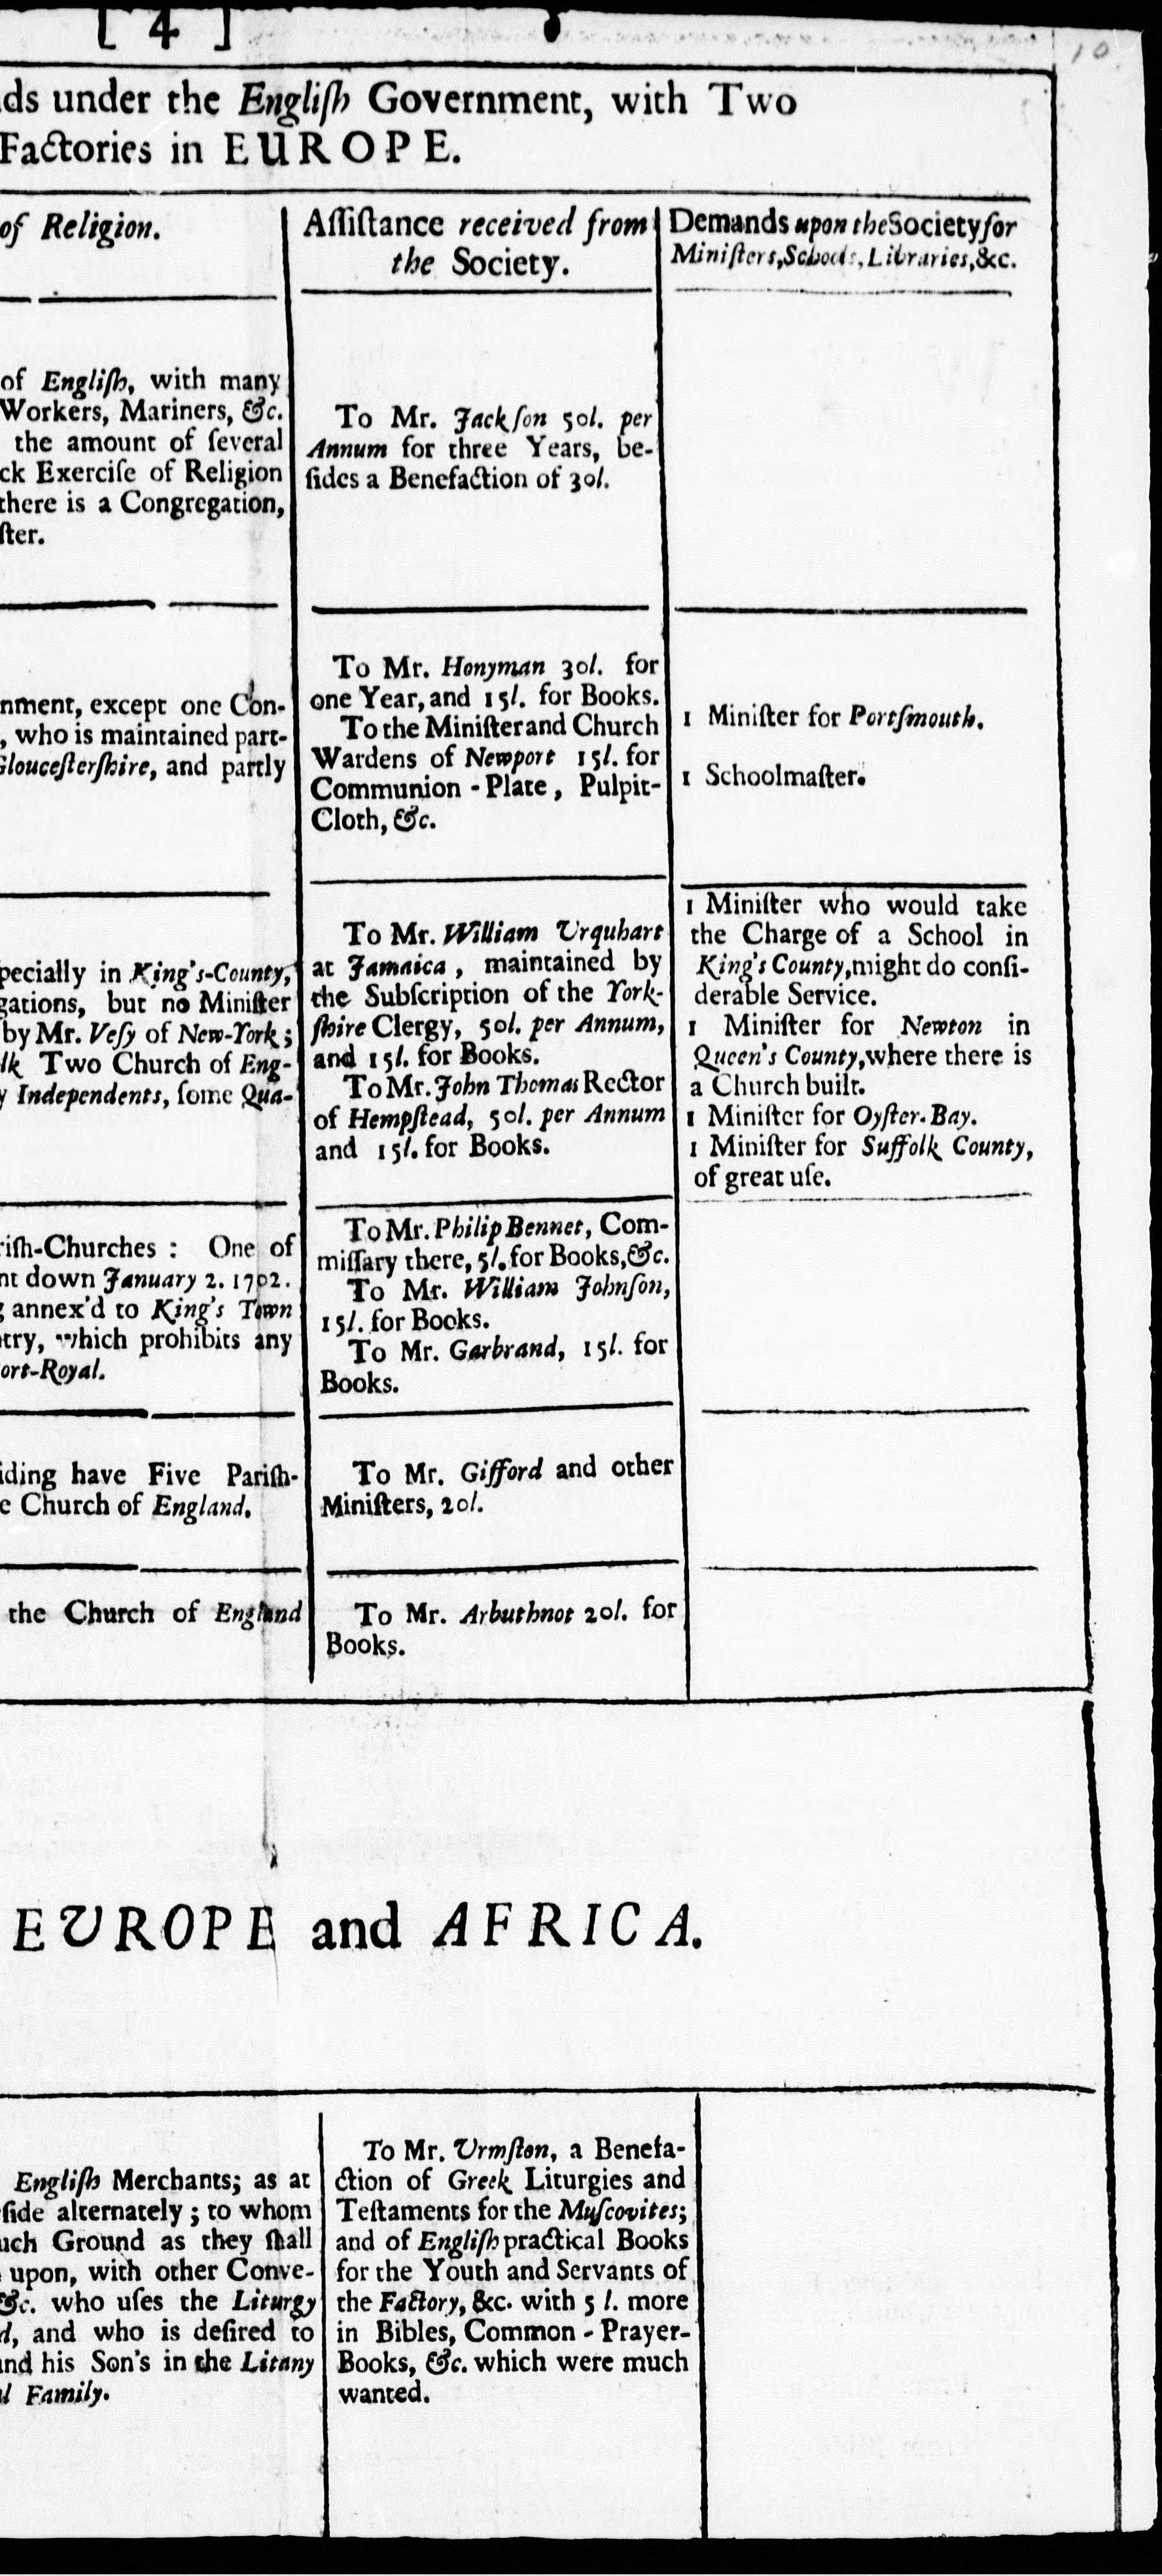 [ 4 ]
10
ds under the Engliſh Government, with Two
Factories in EUROPE.
of Religion.
of Engliſh, with many
Workers, Mariners, &c.
the amount of ſeveral
ck Exerciſe of Religion
there is a Congregation,
ſter.
nment, except one Con-
, who is maintained part-
Glouceſterſhire, and partly
pecially in King's-County,
gations, but no Miniſter
by Mr. Veſy of New-York;
lk Two Church of Eng-
y Independents, ſome Qua-
riſh-Churches: One of
nt down January 2. 1702.
g annex'd to King's Town
ntry, which prohibits any
ort-Royal.
iding have Five Pariſh-
e Church of England.
the Church of England
Aſſiſtance received from
the Society.
To Mr. Jackſon 50l. per
Annum for three Years, be-
ſides a Benefaction of 30l.
To Mr. Honyman 30l. for
one Year, and 15l. for Books.
To the Miniſter and Church
Wardens of Newport 15l. for
Communion-Plate, Pulpit-
Cloth, &c.
To Mr. William Urquhart
at Jamaica, maintained by
the Subſcription of the York-
ſhire Clergy, 50l. per Annum,
and 15l. for Books.
To Mr. John Thomas Rector
of Hempſtead, 50l. per Annum
and 15l. for Books.
To Mr. Philip Bennet, Com-
miſſary there, 5l. for Books, &c.
To Mr. William Johnſon,
15l. for Books.
To Mr. Garbrand, 15l. for
Books.
To Mr. Gifford and other
Miniſters, 20l.
To Mr. Arbuthnot 20l. for
Books.
Demands upon the Society for
Miniſters, Schools, Libraries, &c.
1 Miniſter for Portſmouth.
1 Schoolmaſter.
1 Miniſter who would take
the Charge of a School in
King's County, might do conſi-
derable Service.
1 Miniſter for Newton in
Queen's County, where there is
a Church built.
1 Miniſter for Oyſter-Bay.
1 Miniſter for Suffolk County,
of great uſe.
EUROPE and AFRICA.
Engliſh Merchants; as at
ſide alternately; to whom
uch Ground as they ſhall
upon, with other Conve-
&c. who uſes the Liturgy
d, and who is deſired to
and his Son's in the Litany
l Family.
To Mr. Urmſton, a Benefa-
ction of Greek Liturgies and
Teſtaments for the Muſcovites;
and of Engliſh practical Books
for the Youth and Servants of
the Factory, &c. with 5 l. more
in Bibles, Common-Prayer-
Books, &c. which were much
wanted.